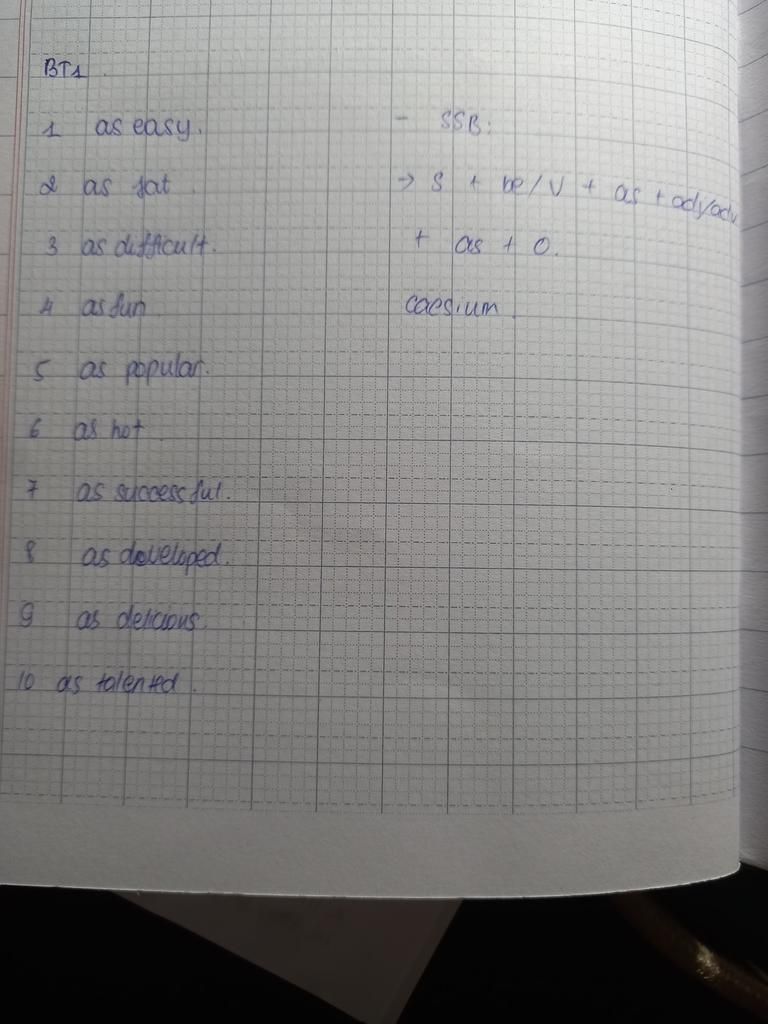 BT1.
1 as easy.
2 as fat.
3 as difficult.
4 as fun
5 as popular.
6 as hot.
7 as successful.
8 as developed.
9 as delicious.
10 as talented.
- SSB:
→ S + be/V + as + adj/adv
+ as + O.
caesium.